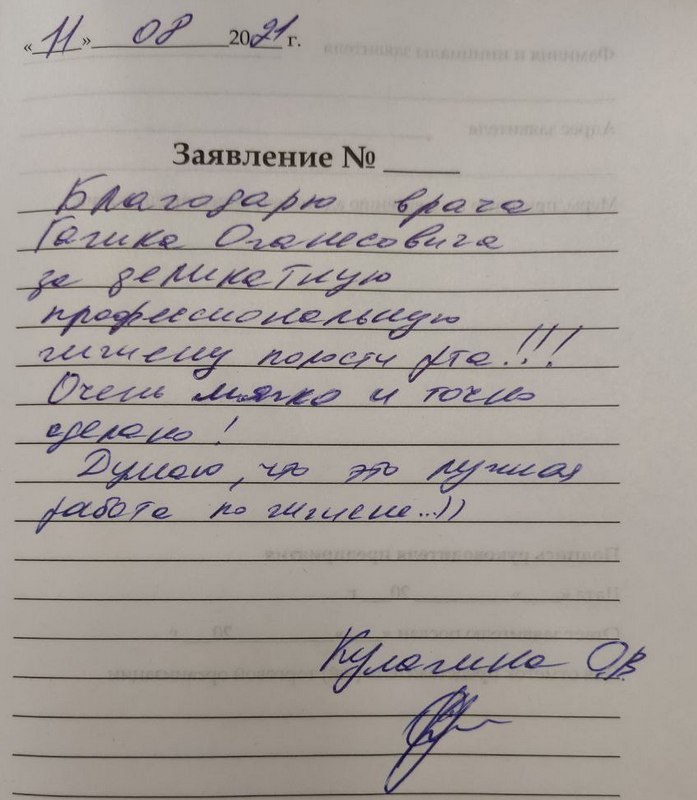 «11» 08 2021 г.
Заявление №
Благодарю врача
Гагика Оганесовича
за деликатную
профессиональную
гигиену полости рта!!!
Очень мягко и точно
сделано!
Думаю, что это лучшая
работа по гигиене...))
Кулагина О.В.